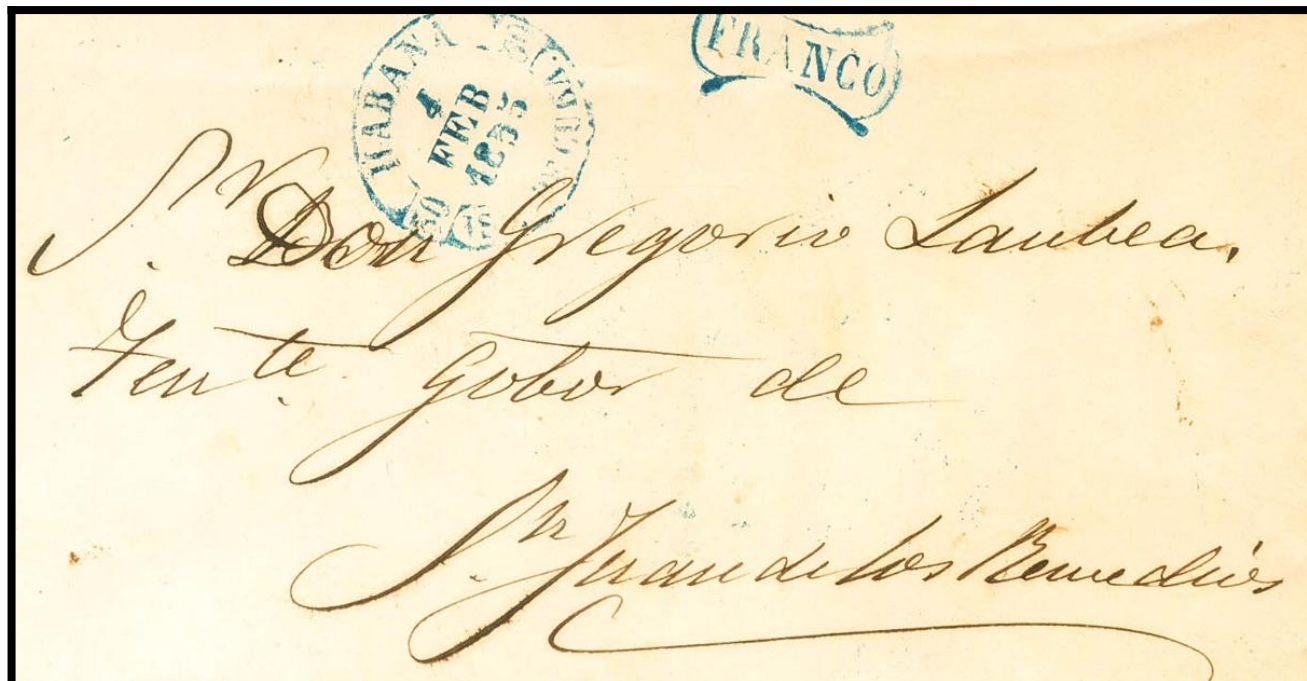 HABANA
4
FEB
1855
FRANCO
Sr. Don Gregorio Laubea.
Tente. Gobor de
Sn. Juan de los Remedios